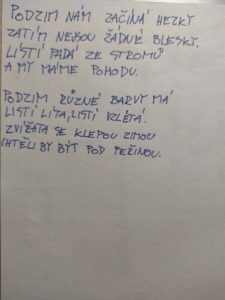 PODZIM NÁM ZAČÍNÁ HEZKY
ZATÍM NEJSOU ŽÁDNÉ BLESKY.
LÍSTÍ PADÁ ZE STROMŮ
A MY MÁME POHODU.
PODZIM RŮZNÉ BARVY MÁ
LISTÍ LÍTÁ, LISTÍ VZLÉTÁ.
ZVÍŘATA SE KLEPOU ZIMOU
CHTĚLI BY BÝT POD PEŘINOU.